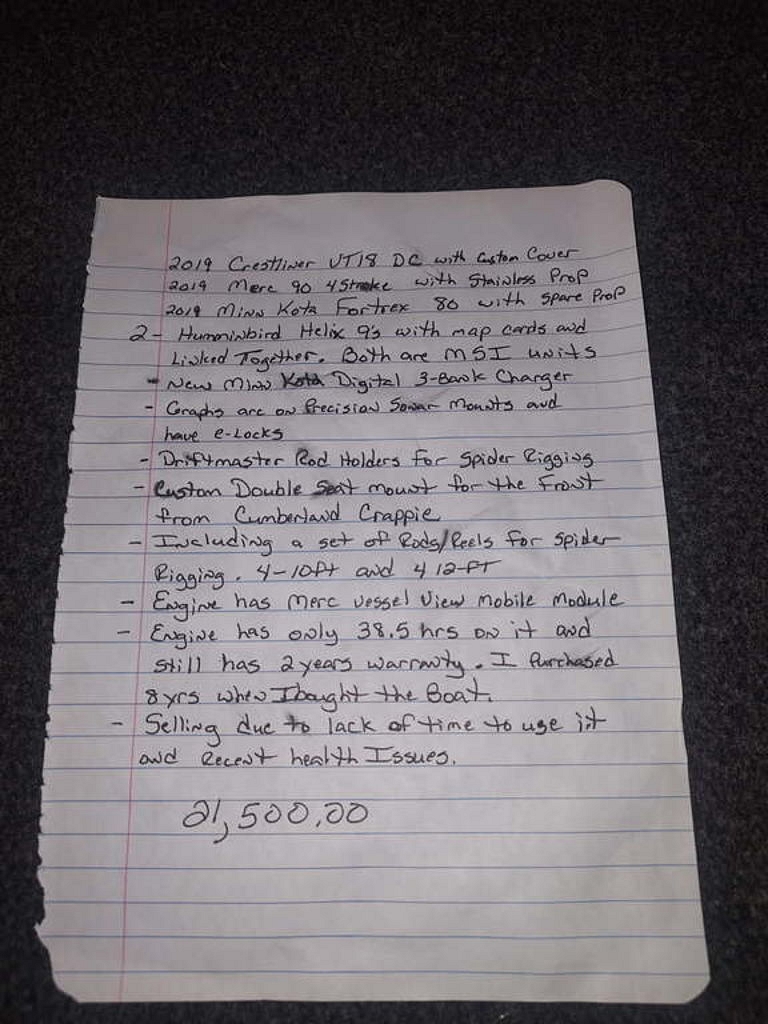 2019 Crestliner VT18 DC with Custom Cover
2019 Merc 90 4 Stroke with Stainless Prop
2019 Minn Kota Fortrex 80 with Spare Prop
2 - Humminbird Helix 9's with map cards and
Linked Together. Both are MSI units
- New Minn Kota Digital 3-Bank Charger
- Graphs are on Precision Sonar Mounts and
have e-Locks
- Driftmaster Rod Holders for Spider Rigging
- Custom Double Seat mount for the Front
from Cumberland Crappie
- Including a set of Rods/Reels for Spider
Rigging. 4-10ft and 4 12-FT
- Engine has Merc Vessel View Mobile Module
- Engine has only 38.5 hrs on it and
still has 2 years warranty. I Purchased
8 yrs when I bought the Boat.
- Selling due to lack of time to use it
and Recent health Issues.
21,500.00